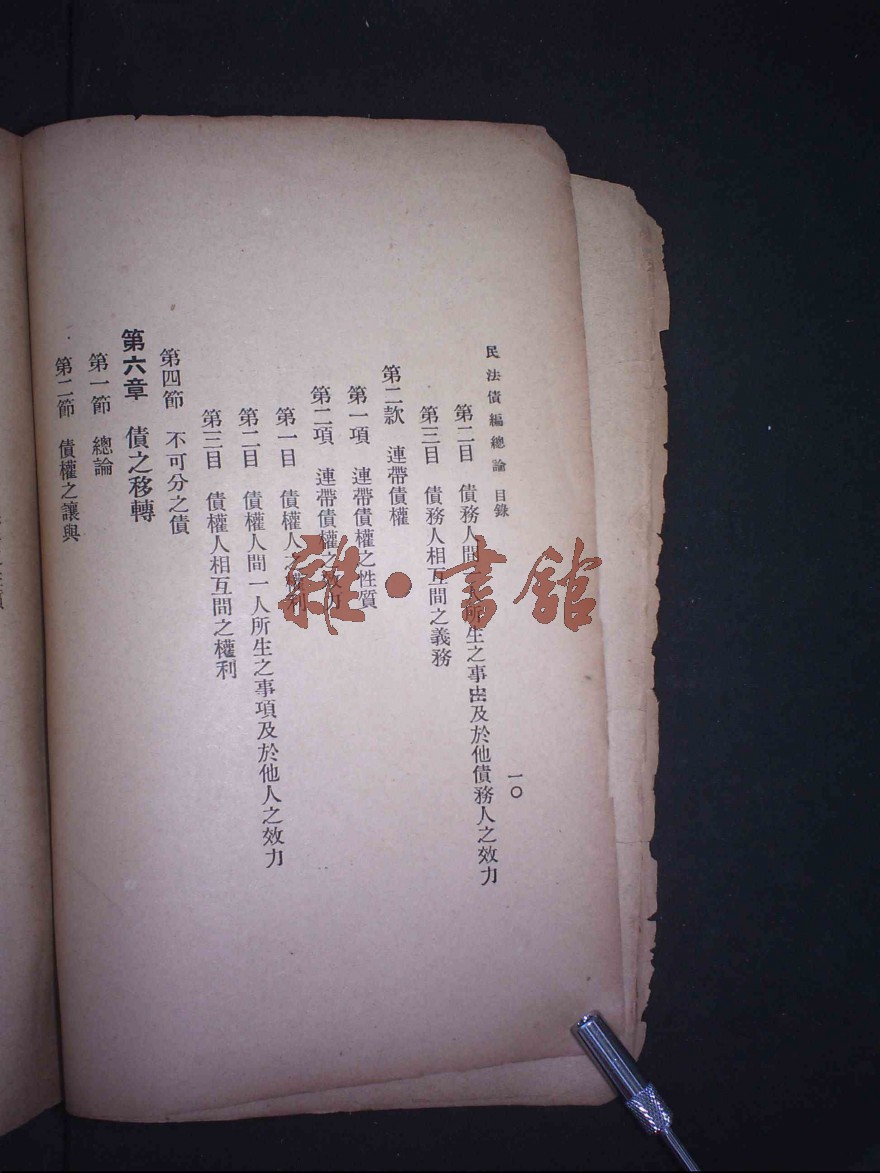 民法債編總論 目錄
一〇
第二目 債務人間一人所生之事由及於他債務人之效力
第三目 債務人相互間之義務
第二款 連帶債權
第一項 連帶債權之性質
第二項 連帶債權之效力
第一目 債權人之權利
第二目 債權人間一人所生之事項及於他人之效力
第三目 債權人相互間之權利
第四節 不可分之債
第六章 債之移轉
第一節 總論
第二節 債權之讓與
雜·書館